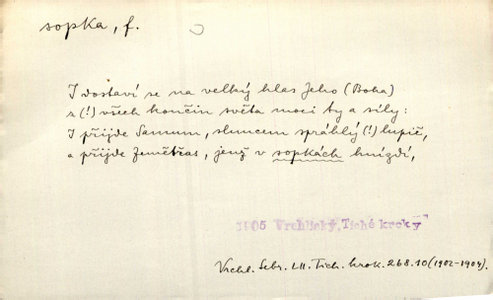 sopka, f.
I dostaví se na velký hlas Jeho (Boha)
z (!) všech končin světa moci ty a síly:
I přijde Samum, sluncem spráhlý (!) lupič,
a přijde Zemětřas, jenž v sopkách hnízdí,
1905 Vrchlický, Tiché kroky
Vrchl. Sebr. LII. Tich. krok. 268.10 (1902-1904).